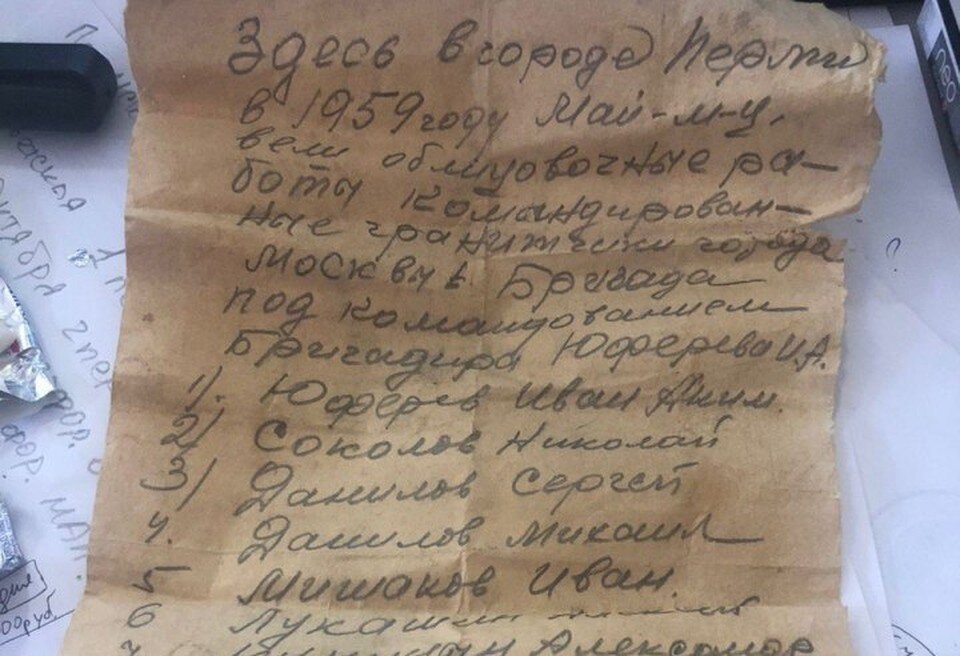 Здесь в городе Перми
в 1959 году Май-м-ц.
вели облицовочные ра-
боты командирован-
ные гранитчики города
Москвы Бригада
под командованием
Бригадира Юферева И.А.
1). Юферев Иван Аким.
2) Соколов Николай
3) Данилов Сергей
4. Данилов Михаил
5 Мишаков Иван.
6 Лукашин
7 Александр
neo
00руб.